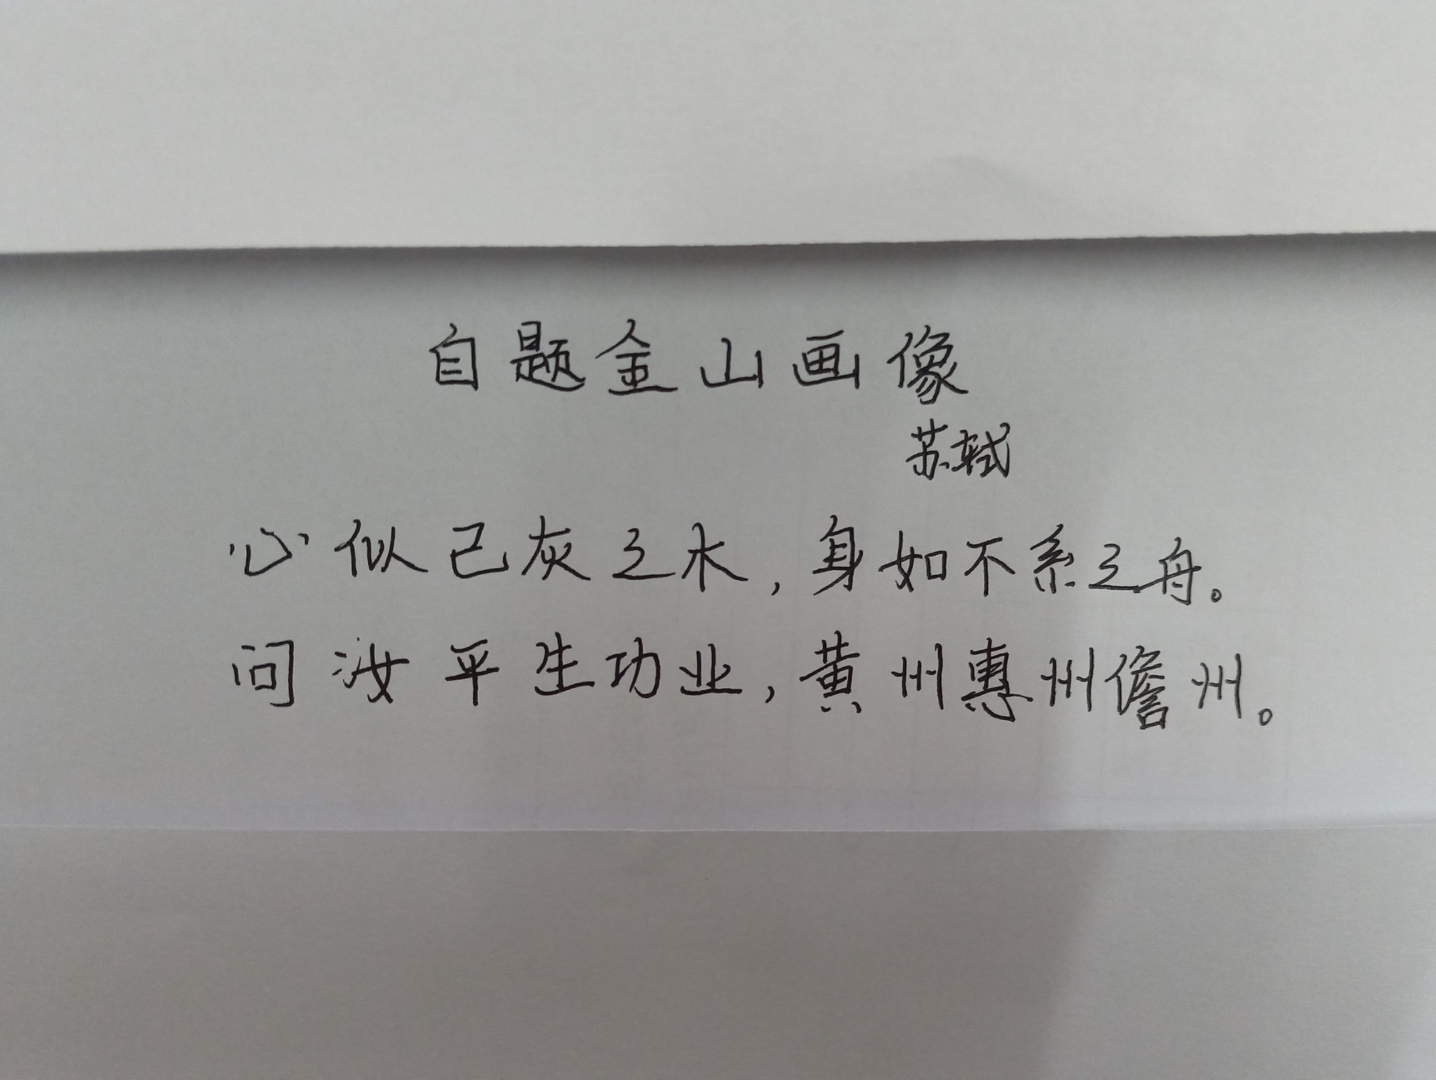 自题金山画像
苏轼
心似已灰之木,身如不系之舟。
问汝平生功业,黄州惠州儋州。